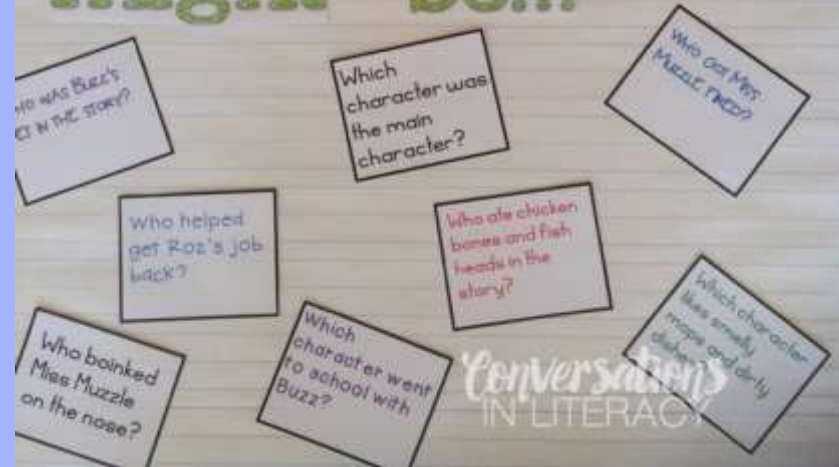 might be...
WHO WAS BUZZ'S
PET IN THE STORY?
Which
character was
the main
character?
WHO GOT MISS
MUZZLE FIRED?
Who helped
get Roz's job
back?
Who ate chicken
bones and fish
heads in the
story?
Who boinked
Miss Muzzle
on the nose?
Which
character went
to school with
Buzz?
Which character
likes smelly
mops and dirty
dishes?
Conversations
IN LITERACY